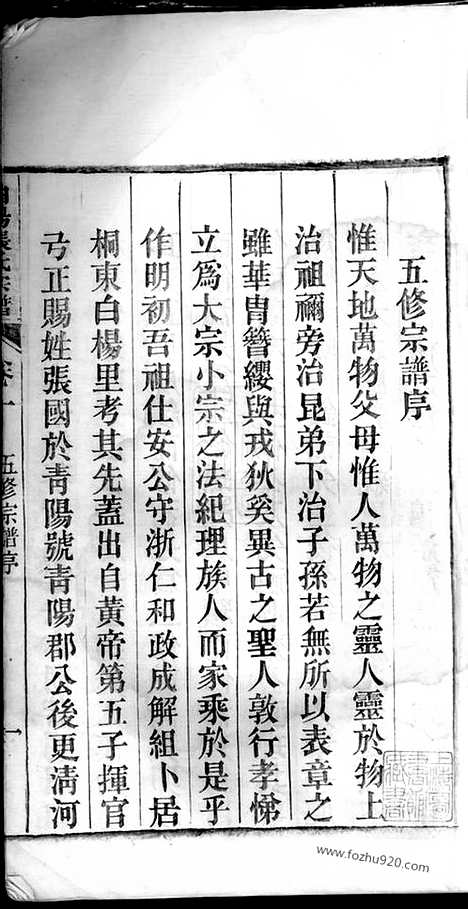 五修宗譜序
惟天地萬物父母惟人萬物之靈人靈於物上
治祖禰旁治昆弟下治子孫若無所以表章之
雖華胄簪纓與戎狄奚異古之聖人敦行孝悌
立爲大宗小宗之法紀理族人而家乘於是乎
作明初吾祖仕安公守浙仁和政成解組卜居
桐東白楊里考其先蓋出自黃帝第五子揮官
弓正賜姓張國於靑陽號靑陽郡公後更淸河
張氏宗譜 卷一 五修宗譜序 一
www.fozhu920.com